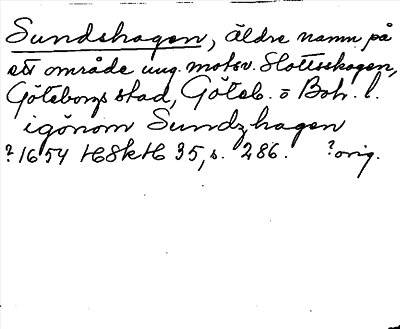 Sundshagen, äldre namn på
ett område ung. motsv. Slottsskogen,
Göteborgs stad, Göteb. o Boh. l.
igönom Sundzhagen
? 1654 HSkH 35, s. 286. ? orig.